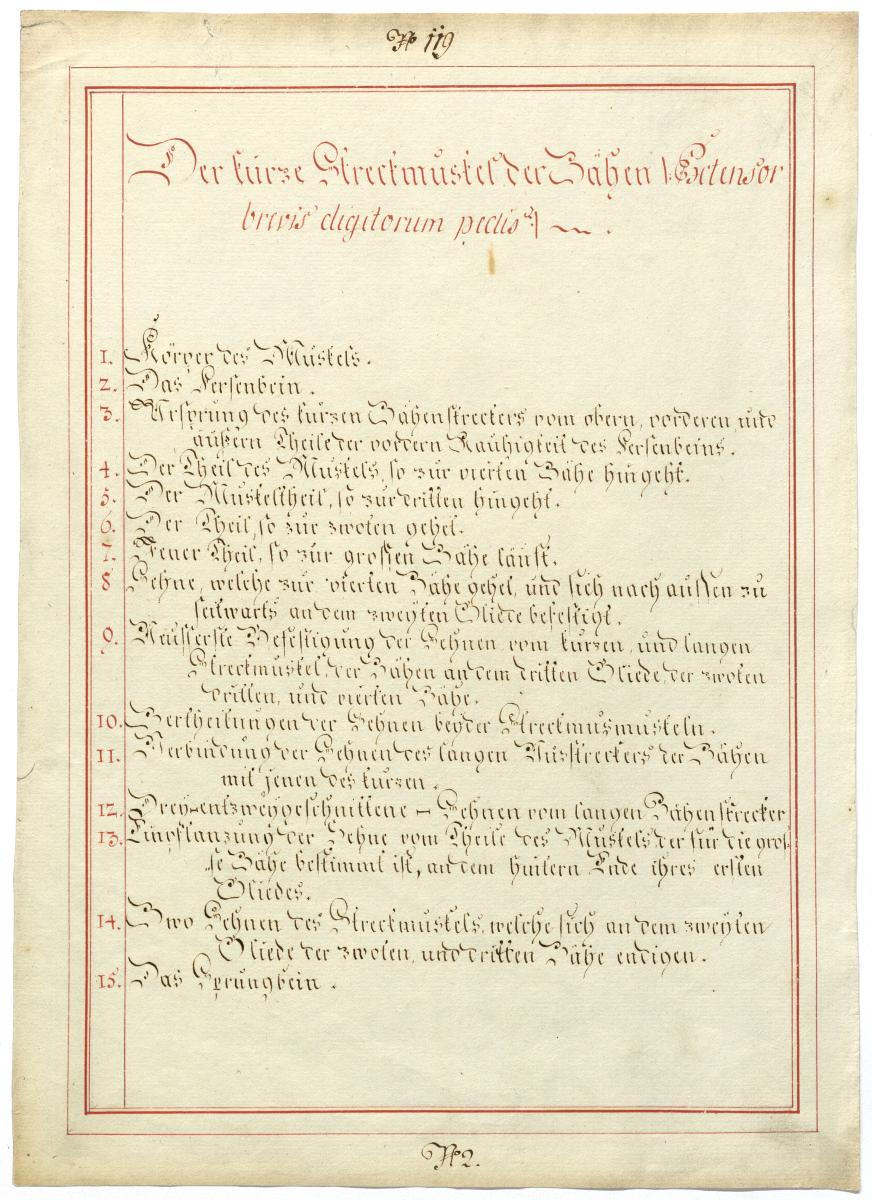 No 119
Der kurze Streckmuskel der Zähen |: Extensor
brevis digitorum pedis :|
1. Körper des Muskels.
2. Das Fersenbein.
3. Ursprung des kurzen Zähenstreckers vom obern, vorderen, und
äußern Theile der vordern Rauhigkeit des Fersenbeins.
4. Der Theil des Muskels, so zur vierten Zähe hingeht.
5. Der Muskeltheil, so zur dritten hingeht.
6. Der Theil, so zur zwoten gehet.
7. Jener Theil, so zur grossen Zähe läuft.
8 Sehne, welche zur vierten Zähe gehet, und sich nach aussen zu
seitwarts an dem zweyten Gliede befestigt.
9. Aeusserste Befestigung der Sehnen vom kurzen, und langen
Streckmuskel der Zähen an dem dritten Gliede, der zwoten
dritten, und vierten Zähe.
10. Zertheilungen der Sehnen beyder Streckmusmuskeln.
11. Verbindung der Sehnen des langen Ausstreckers der Zähen
mit jenen des kurzen.
12. Drey entzweygeschnittene – Sehnen vom langen Zähenstrecker
13. Einpflanzung der Sehne vom Theile des Muskels der für die gros-
se Zähe bestimmt ist, an dem hintern Ende ihres ersten
Gliedes.
14. Zwo Sehnen des Streckmuskels, welche sich an dem zweyten
Gliede der zwoten, und dritten Zähe endigen.
15. Das Sprungbein.
No 2.